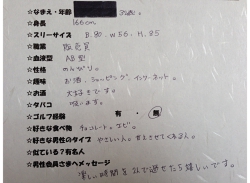 ☆なまえ・年齢 31歳。
☆身長 166cm.
☆スリーサイズ B.80.W56.H.85
☆職業 販売員
☆血液型 AB型
☆性格 のんびり。
☆趣味 お酒、ショッピング、インターネット。
☆お酒 大好きです。
☆タバコ 吸います。
☆ゴルフ経験 有・無
☆好きな食べ物 チョコレート。エビ。
☆好きな男性のタイプ やさしい人。甘えさせてくれる人。
☆似ている?有名人
☆男性会員さまへメッセージ
楽しい時間を2人で過せたら嬉しいです。